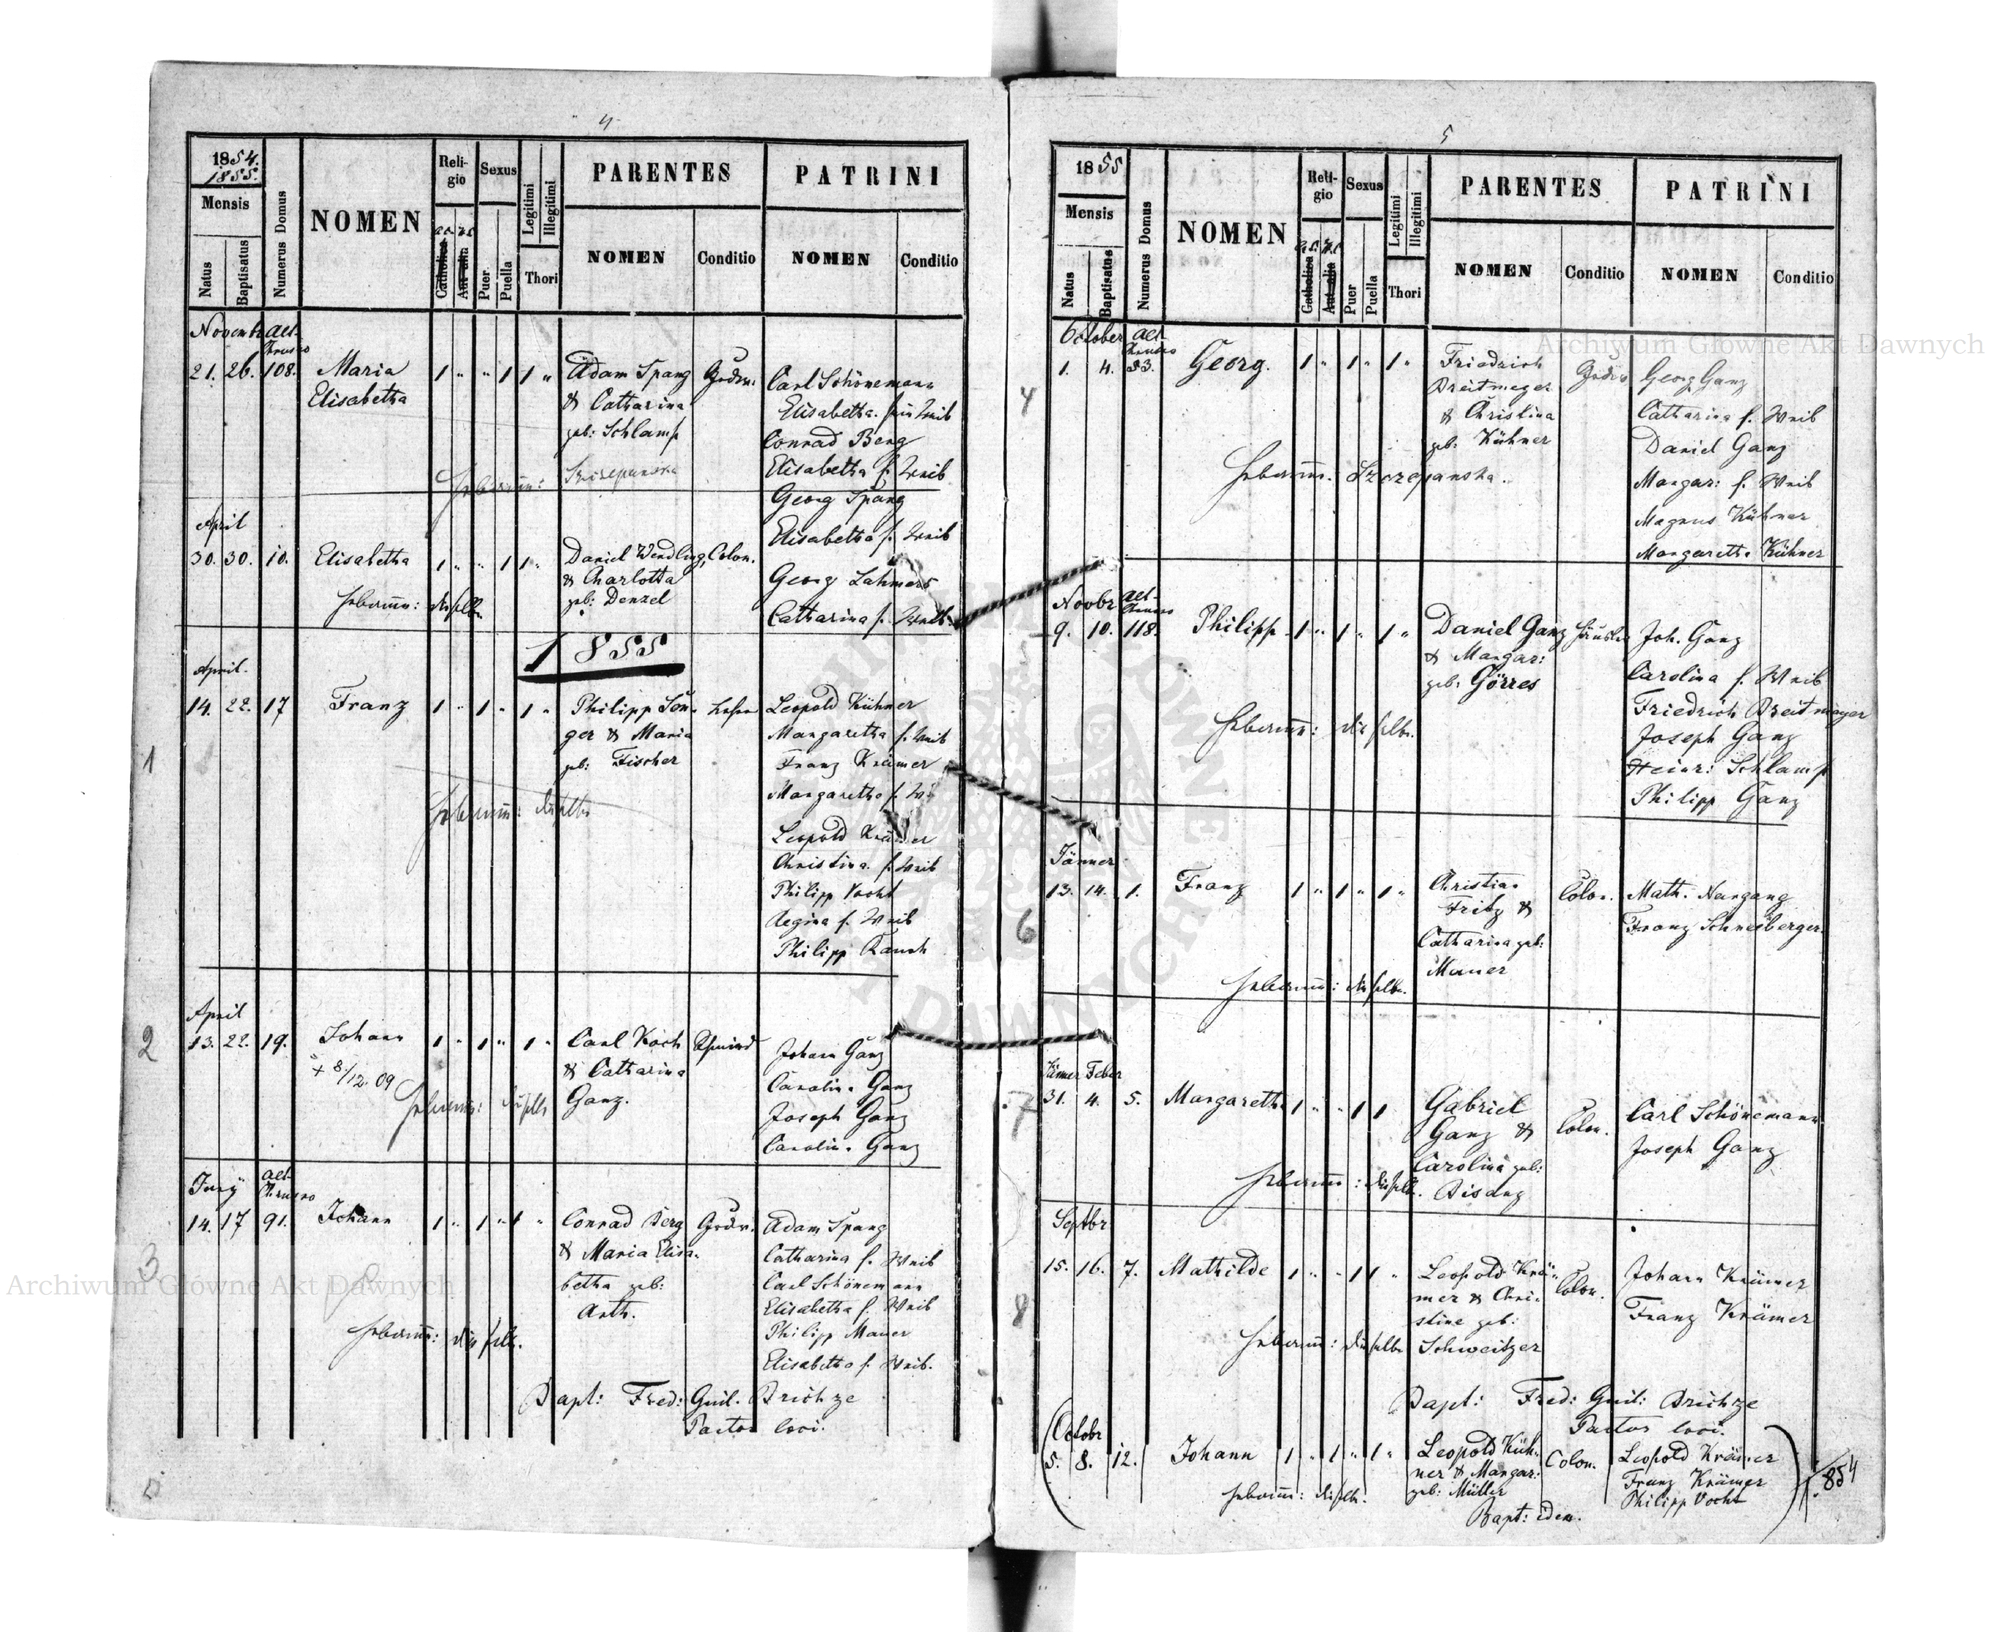 4
1854.
1855.
Mensis
Natus
Baptisatus
Numerus Domus
NOMEN
Religio
Catholica
Aut alia
Sexus
Puer
Puella
Legitimi
Illegitimi
Thori
PARENTES
NOMEN
Conditio
PATRINI
NOMEN
Conditio
Novemb. Alt-
Chrusno
21. 26. 108. Maria 1 " " 1 1 " Adam Spang Carl Schönemann
Elisabetha & Catharina Elisabetha sein Weib
geb: Schlamp Conrad Berg
Hebamm: Szczepanska Elisabetha s. Weib
Georg Spang
Elisabetha s. Weib
April
30. 30. 10. Elisabetha 1 " " 1 1 " Daniel Wendling, Colon.
& Charlotta Georg Lahmers
Hebamm: dieselbe geb: Denzel
Catharina s. Weib
1855
April.
14. 22. 17 Franz 1 " 1 " 1 " Philipp Sön- Leopold Kühner
ger & Maria Margaretha s. Weib
geb: Fischer Franz Krämer
Margaretha s. W
Hebamm: dieselbe
Leopold Krämer
Christina s. Weib
Philipp Vocht
Regina s. Weib
Philipp Rauch
April
13. 22. 19. Johann 1 " 1 " 1 " Carl Koch Schmied Johann Ganz
+ 8/12 09 & Catharina Carolina Ganz
Hebamm: dieselbe Ganz. Joseph Ganz
Carolin. Ganz
July Alt-
Chrusno
14. 17 91. Johann 1 " 1 " 1 " Conrad Berg Adam Spang
& Maria Elisa- Catharina s. Weib
betha geb: Carl Schönemann
Arth. Elisabetha s. Weib
Hebamm: dieselbe. Philipp Mauer
Elisabetha s. Weib.
Bapt: Fred: Guil. Brichze
Pastor loci.
1
2
3
5
1855
Mensis
Natus
Baptisatus
Numerus Domus
NOMEN
Religio
Catholica
Aut alia
Sexus
Puer
Puella
Legitimi
Illegitimi
Thori
PARENTES
NOMEN
Conditio
PATRINI
NOMEN
Conditio
October Alt-
Chrusno
1. 4. 83. Georg. 1 " 1 " 1 " Friedrich Georg Ganz
Breitmeyer Catharina s. Weib
& Christina Daniel Ganz
geb: Kühner Margar: s. Weib
Hebamm. Szczepanska. Magnus Kühner
Margaretha Kühner
4
Novbr Alt-
Chrusno
9. 10. 118. Philipp 1 " 1 " 1 " Daniel Ganz Häusler Joh. Ganz
& Margar: Carolina s. Weib
geb: Görres Friedrich Breitmeyer
Hebamm: dieselbe. Joseph Ganz
Heinr: Schlamp
Philipp Ganz
Jänner
13. 14. 1. Franz 1 " 1 " 1 " Christian Colon. Math. Nargang
Fritz & Franz Schneeberger.
Catharina geb:
Mauer
Hebamm: dieselbe.
6
Jänner Feber
31. 4. 5. Margareth. 1 " " 1 1 Gabriel Colon. Carl Schönemann
Ganz & Joseph Ganz
Carolina geb:
Hebamm: dieselbe. Bisang
7
Septbr
15. 16. 7. Mathilde 1 " " 1 1 " Leopold Krä- Colon. Johann Krämer
mer & Chri- Franz Krämer
stine geb:
Hebamm: dieselbe Schweitzer
8
Bapt: Fred: Guil: Brichze
Pastor loci.
Octobr
5. 8. 12. Johann 1 " 1 " 1 " Leopold Küh- Colon. Leopold Krämer
ner & Margar: Franz Krämer
Hebamm: dieselbe. geb: Müller Philipp Vocht
Bapt: idem.
1854
Archiwum Główne Akt Dawnych
Archiwum Główne Akt Dawnych